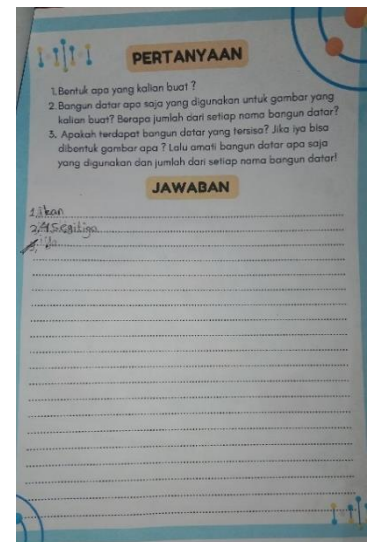 PERTANYAAN
1. Bentuk apa yang kalian buat ?
2. Bangun datar apa saja yang digunakan untuk gambar yang
kalian buat? Berapa jumlah dari setiap nama bangun datar?
3. Apakah terdapat bangun datar yang tersisa? Jika iya bisa
dibentuk gambar apa ? Lalu amati bangun datar apa saja
yang digunakan dan jumlah dari setiap nama bangun datar!
JAWABAN
1. ikan
2.
3.